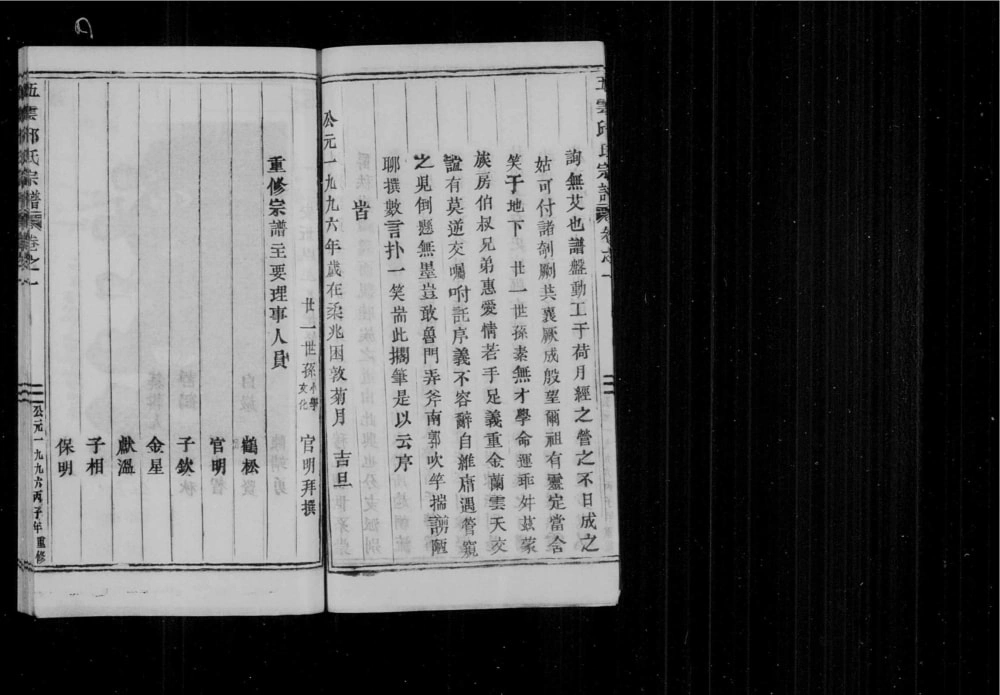 五雲邱氏宗譜 卷之一
詢無艾也譜盤動工于荷月經之營之不日成之
姑可付諸剞劂共襄厥成殷望爾祖有靈定當含
笑于地下 廿一世孫素無才學命運乖舛茲蒙
族房伯叔兄弟惠愛情若手足義重金蘭雲天交
誼有莫逆交囑咐託序義不容辭自維庸遇管窺
之見倒懸無墨豈敢魯門弄斧南郭吹竽揣謭陋
聊撰數言扑一笑耑此擱筆是以云序
旹
公元一九九六年歲在柔兆困敦菊月 吉旦
廿一世孫 小學文化 官明拜撰
重修宗譜主要理事人員
鶴松
官明
子欽
金星
獻溫
子相
保明
五雲邱氏宗譜 卷之一
公元一九九六丙子年重修